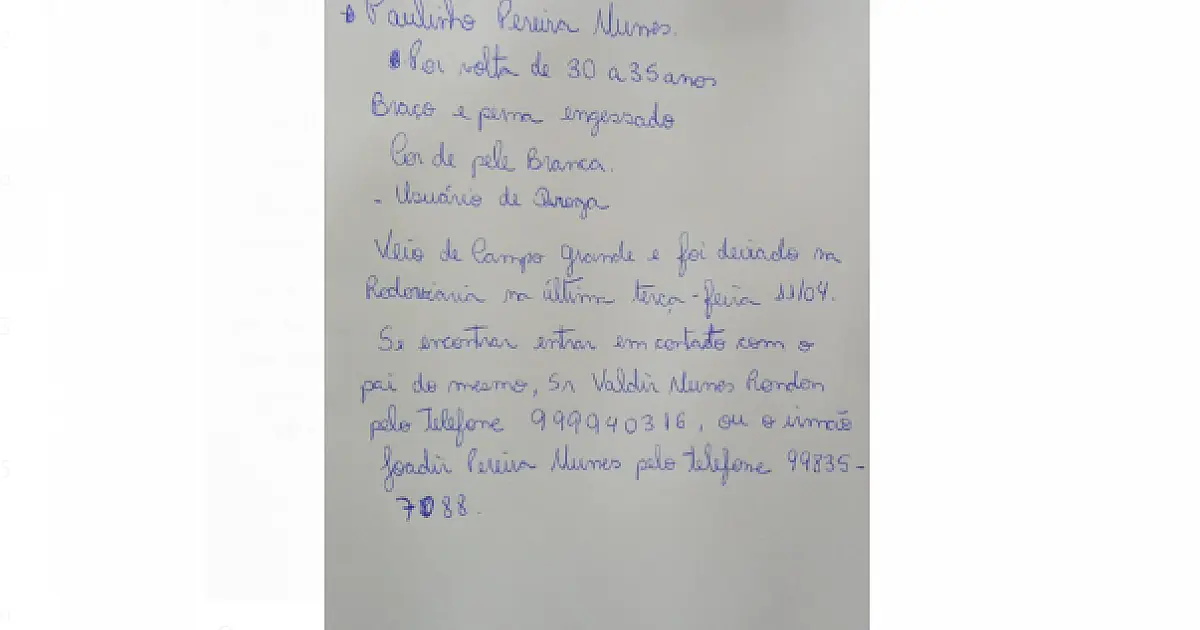 Paulinho Pereira Nunes.
Por volta de 30 a 35 anos
Braço e perna engessado
Cor de pele Branca.
- Usuário de Droga
Veio de Campo Grande e foi deixado na
Rodoviaria na última terça-feira 11/04.
Se encontrar entrar em contato com o
pai do mesmo, Sr Valdir Nunes Rondon
pelo Telefone 999940316, ou o irmão
Joadir Pereira Nunes pelo telefone 99835-
7088.